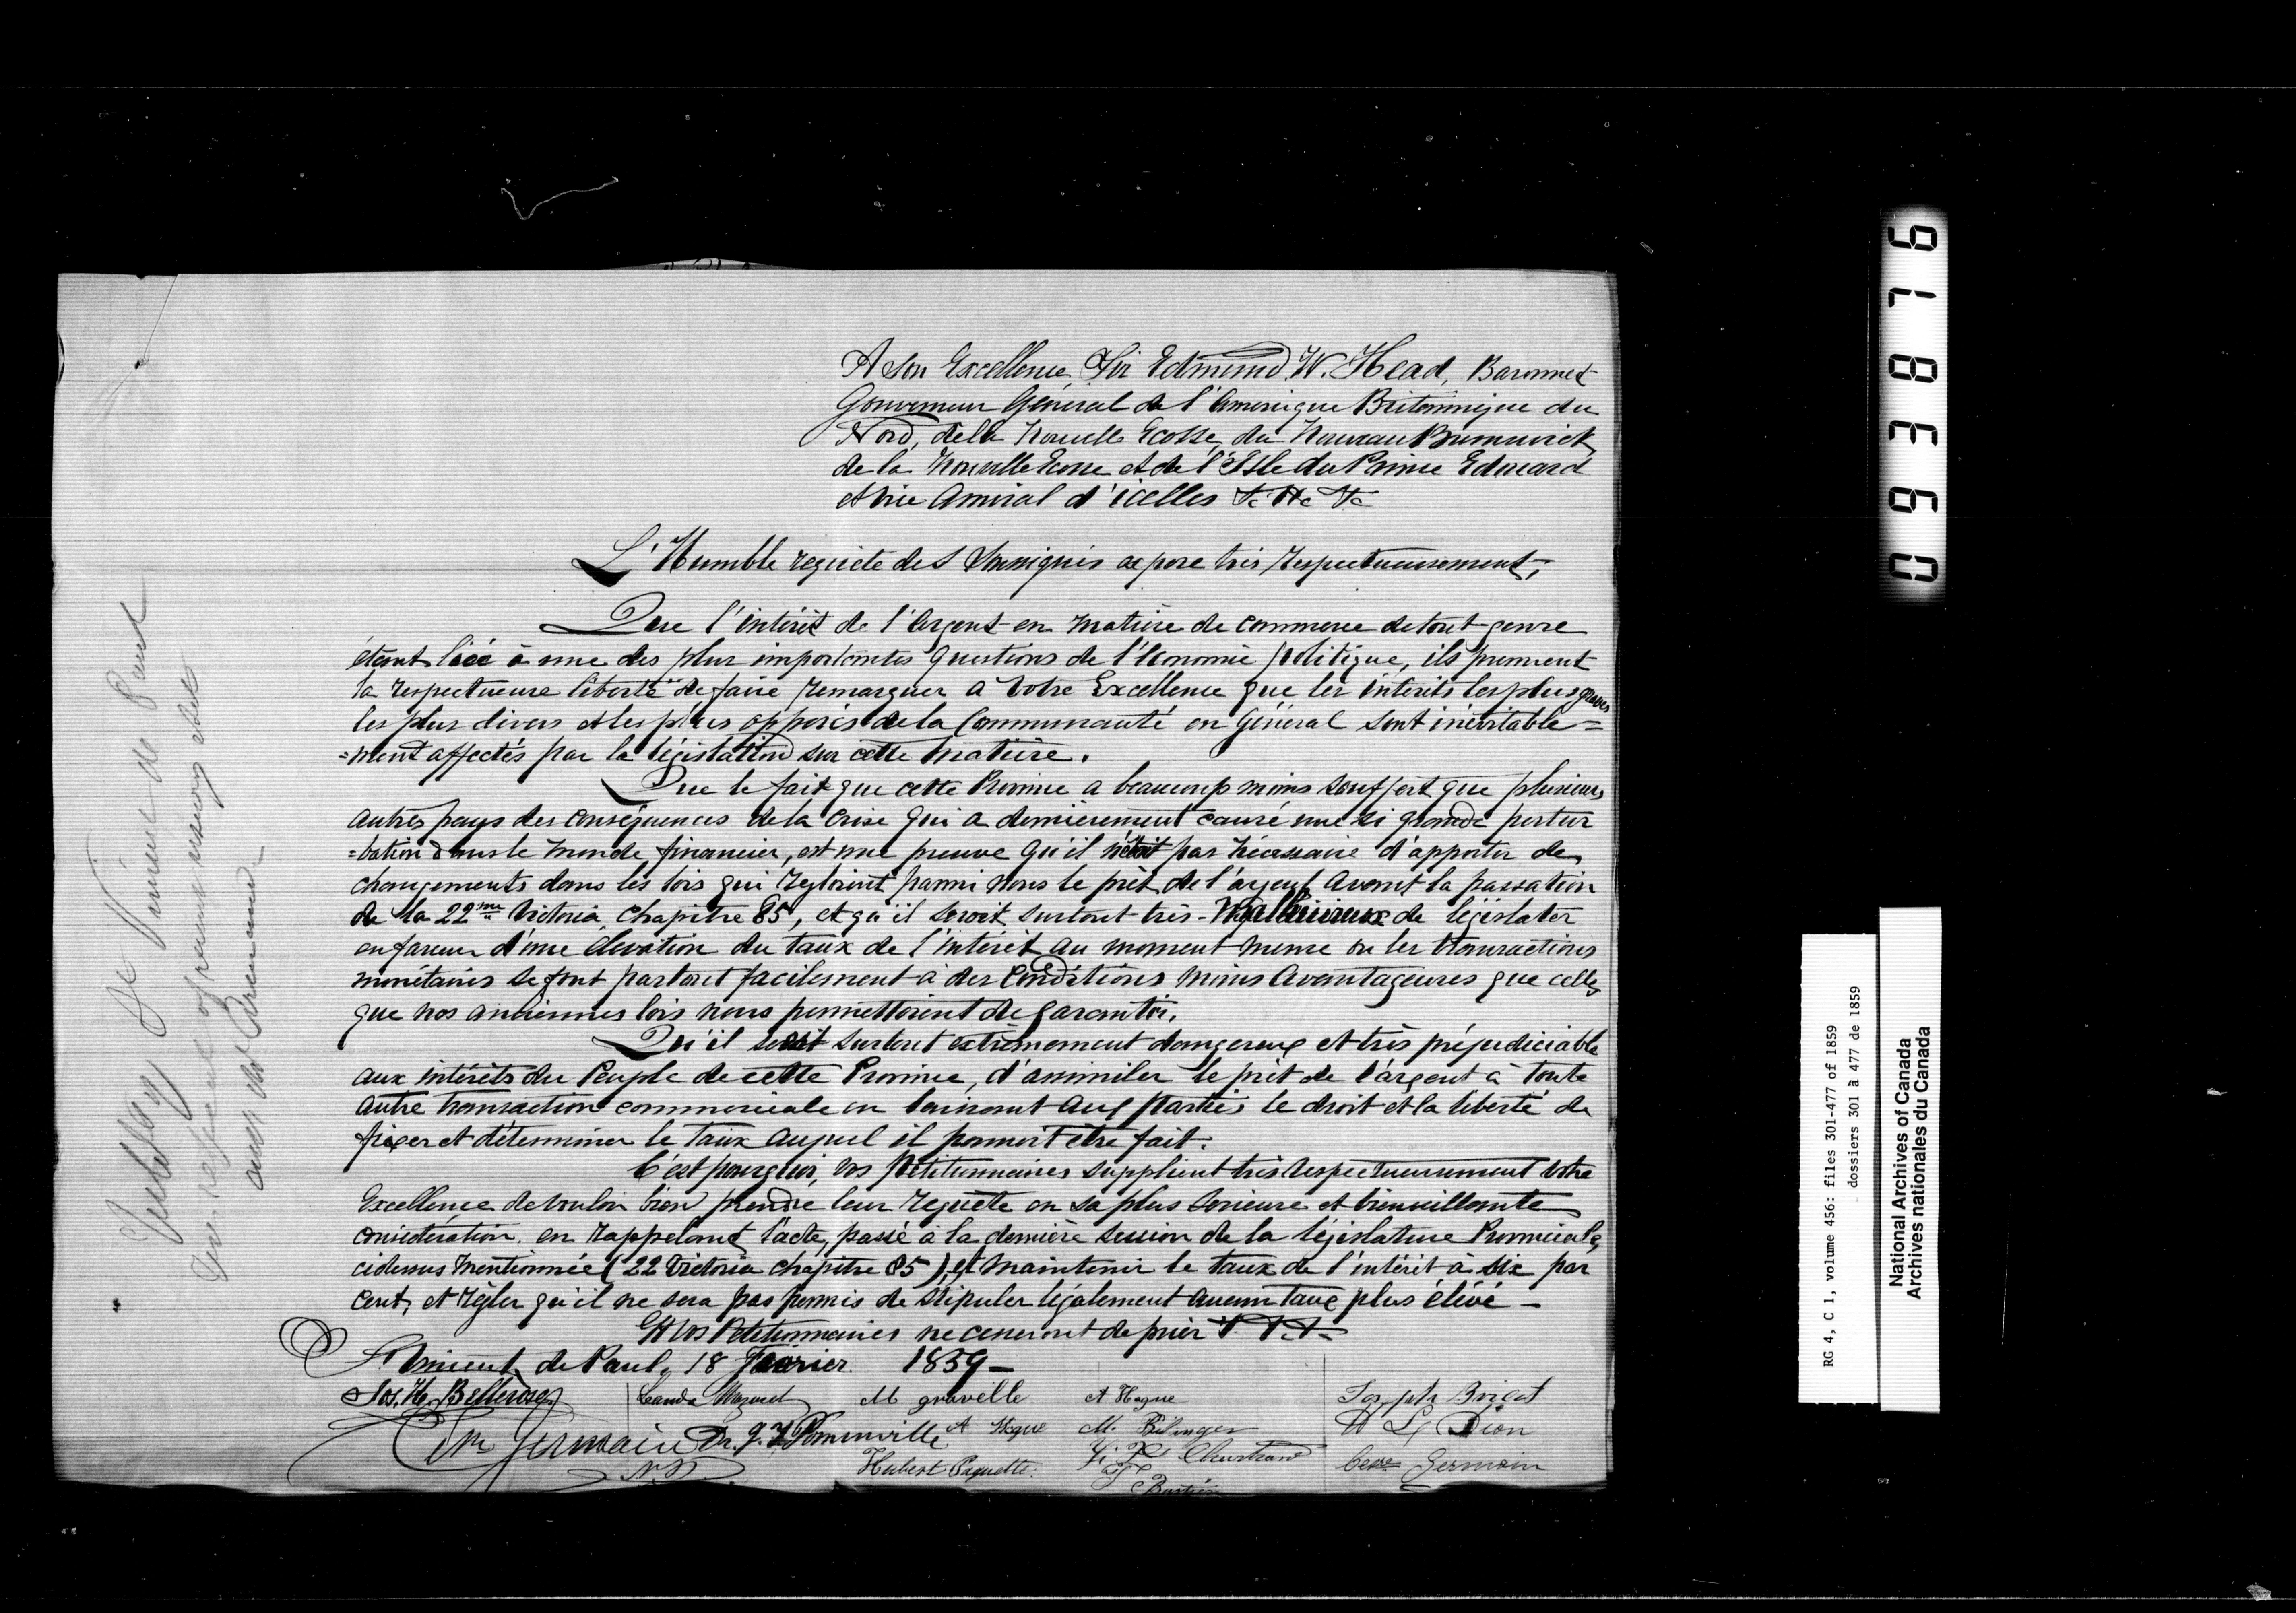 A Son Excellence Sir Edmund W. Head, Baronnet
Gouverneur Général de l'Amérique Britannique du
Nord, de la Nouvelle Ecosse, du Nouveau Brunswick
de la Nouvelle Ecosse et de l'Isle du Prince Edouard
et Vice Amiral d'icelles &c &c &c
L'Humble requête des Soussignés expose très respectueusement,
Que l'intérêt de l'argent en matière de commerce de tout genre
étant liée à une des plus importantes questions de l'économie politique, ils prennent
la respectueuse liberté de faire remarquer à Votre Excellence que les intérêts les plus graves
les plus divers et les plus opposés de la Communauté en Général sont inévitable=
=ment affectés par la législation sur cette matière.
Que le fait que cette Province a beaucoup moins souffert que plusieurs
autres pays des conséquences de la crise qui a dernièrement causé une si grande pertur
=bation dans le monde financier, est une preuve qu'il n'était pas nécessaire d'apporter des
changements dans les lois qui régloient parmi nous le prêt de l'argent avant la passation
de la 22me Victoria chapitre 85, et qu'il seroit surtout très-Malheureux de législater
en faveur d'une élevation du taux de l'intérêt au moment même ou les transactions
monétaires se font partout facilement à des conditions moins avantageuses que celles
que nos anciennes lois nous permettoient de garantir.
Qu'il seroit surtout extrêmement dangereux et très préjudiciable
aux intérêts du Peuple de cette Province, d'assimiler le prêt de l'argent à toute
autre transaction commerciale en laissant aux parties le droit et la liberté de
fixer et déterminer le taux auquel il pourroit être fait.
C'est pourquoi, vos pétitionnaires supplient très respectueusement Votre
Excellence de vouloir bien prendre leur requête en sa plus sérieuse et bienveillante
considération en rappelant l'acte, passé à la dernière session de la législature Provinciale,
cidessus mentionnée (22 Victoria chapitre 85), et maintenir le taux de l'intérêt à six par
cent, et régler qu'il ne sera pas permis de stipuler légalement aucun taux plus élévé —
Et vos Petitionnaires ne cesseront de prier &. &. &.
St Vincent de Paul, 18 Fevrier 1859 —
Jos. H. Bellerose M gravelle A Hogue Joseph
Germain Dr. J. Pominville A M. Bélanger Dion
N.P. Hubert Paquette. Chartrand Germain
St Vincent de Paul
RG 4, C 1, volume 456: files 301-477 of 1859
dossiers 301 à 477 de 1859
National Archives of Canada
Archives nationales du Canada
093876